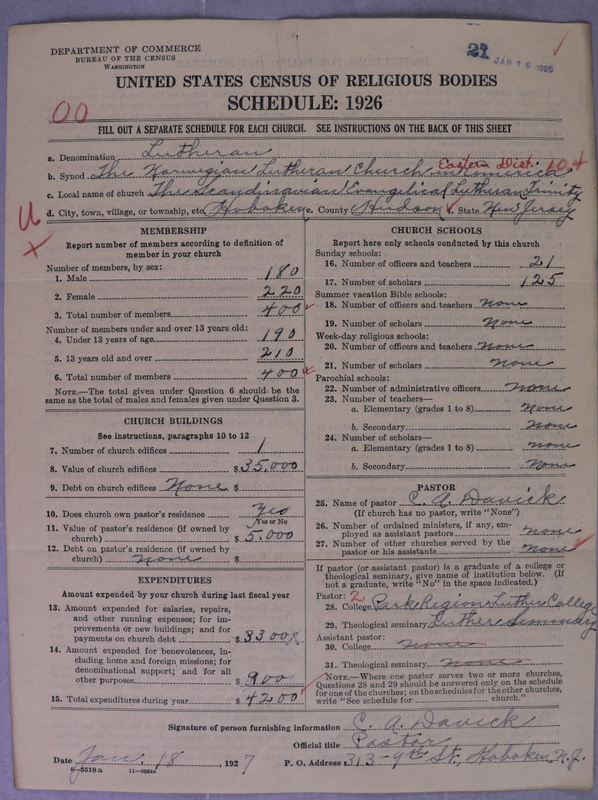 DEPARTMENT OF COMMERCE
BUREAU OF THE CENSUS
WASHINGTON
21 JAN 19
UNITED STATES CENSUS OF RELIGIOUS BODIES
SCHEDULE: 1926
00
FILL OUT A SEPARATE SCHEDULE FOR EACH CHURCH. SEE INSTRUCTIONS ON THE BACK OF THIS SHEET
a. Denomination Lutheran
b. Synod The Norwigian Lutheran Church in America Eastern Dist. 104
c. Local name of church The Scandinavian Evangelical Lutheran Trinity
d. City, town, village, or township, etc. Hoboken e. County Hudson f. State New Jersey
U
X
MEMBERSHIP
Report number of members according to definition of
member in your church
Number of members, by sex:
1. Male 180
2. Female 220
3. Total number of members 400
Number of members under and over 13 years old:
4. Under 13 years of age 190
5. 13 years old and over 210
6. Total number of members 400
NOTE.—The total given under Question 6 should be the
same as the total of males and females given under Question 3.
CHURCH BUILDINGS
See instructions, paragraphs 10 to 12
7. Number of church edifices 1
8. Value of church edifices $35,000
9. Debt on church edifices None $
10. Does church own pastor's residence Yes
Yes or No
11. Value of pastor's residence (if owned by
church) $5.000
12. Debt on pastor's residence (if owned by
church) none $
EXPENDITURES
Amount expended by your church during last fiscal year
13. Amount expended for salaries, repairs,
and other running expenses; for im-
provements or new buildings; and for
payments on church debt $3300
14. Amount expended for benevolences, in-
cluding home and foreign missions; for
denominational support; and for all
other purposes $900
15. Total expenditures during year $4200
CHURCH SCHOOLS
Report here only schools conducted by this church
Sunday schools:
16. Number of officers and teachers 21
17. Number of scholars 125
Summer vacation Bible schools:
18. Number of officers and teachers None
19. Number of scholars None
Week-day religious schools:
20. Number of officers and teachers None
21. Number of scholars None
Parochial schools:
22. Number of administrative officers None
23. Number of teachers—
a. Elementary (grades 1 to 8) None
b. Secondary None
24. Number of scholars—
a. Elementary (grades 1 to 8) none
b. Secondary None
PASTOR
25. Name of pastor C. A. Davick
(If church has no pastor, write "None")
26. Number of ordained ministers, if any, em-
ployed as assistant pastors none
27. Number of other churches served by the
pastor or his assistants None
If pastor (or assistant pastor) is a graduate of a college or
theological seminary, give name of institution below. (If
not a graduate, write "None" in the space indicated.)
Pastor: 2
28. College Park Region Luther College
29. Theological seminary Luther Seminary
Assistant pastor:
30. College none
31. Theological seminary none
NOTE.—Where one pastor serves two or more churches,
Questions 28 and 29 should be answered only on the schedule
for one of the churches; on the schedules for the other churches,
write "See schedule for church."
Signature of person furnishing information C. A. Davick
Official title Pastor
Date Jan. 18, 1927 P. O. Address 313-9th St., Hoboken, N. J.
8—5518a 11—9054